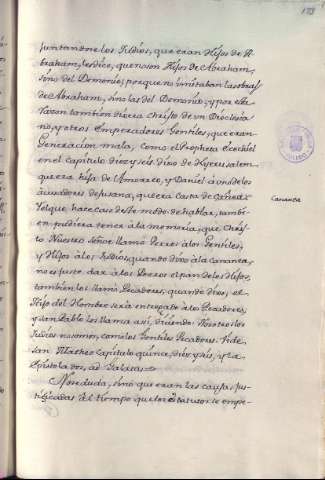 133
juntandose los Judios, que eran Hijos de A-
braham, les dice, que no son Hijos de Abraham,
sino del Demonio; porque no imitaban las obras
de Abraham, sino las del Demonio; y por esta
razon tambien dixera Christo de un Dioclesia-
no, y otros Emperadores Gentiles, que eran
Generacion mala, como el Propheta Ezechiel
en el capitulo diez y seis dixo de Hyerusalen
que era hija de Amorreo, y Daniel à uno de los
acusadores de Susana, que era casta de Canaa
Y el que hace caso de este modo de hablar, tambi-
en pudiera tener à la memoria, que Chris-
to Nuestro Señor llamò Perros à los Gentiles,
y Hijos à los Judios, quando dixo à la Cananea,
no es justo dar à los Perros el pan de los Hijos,
tambien los llamò Pecadores, quando dixo, el
Hijo del Hombre serà entregado à los Pecadores,
y San Pablo los llama asi, diciendo: Nosotros los
Judios no somos, como los Gentiles Pecadores. Vide
San Matheo capitulo quince, diez y seis, y la
Epistola dos, ad Galatas.
No se duda, sino que eran las causas jus-
tificadas al tiempo que los estatutos se empe-
Cananea